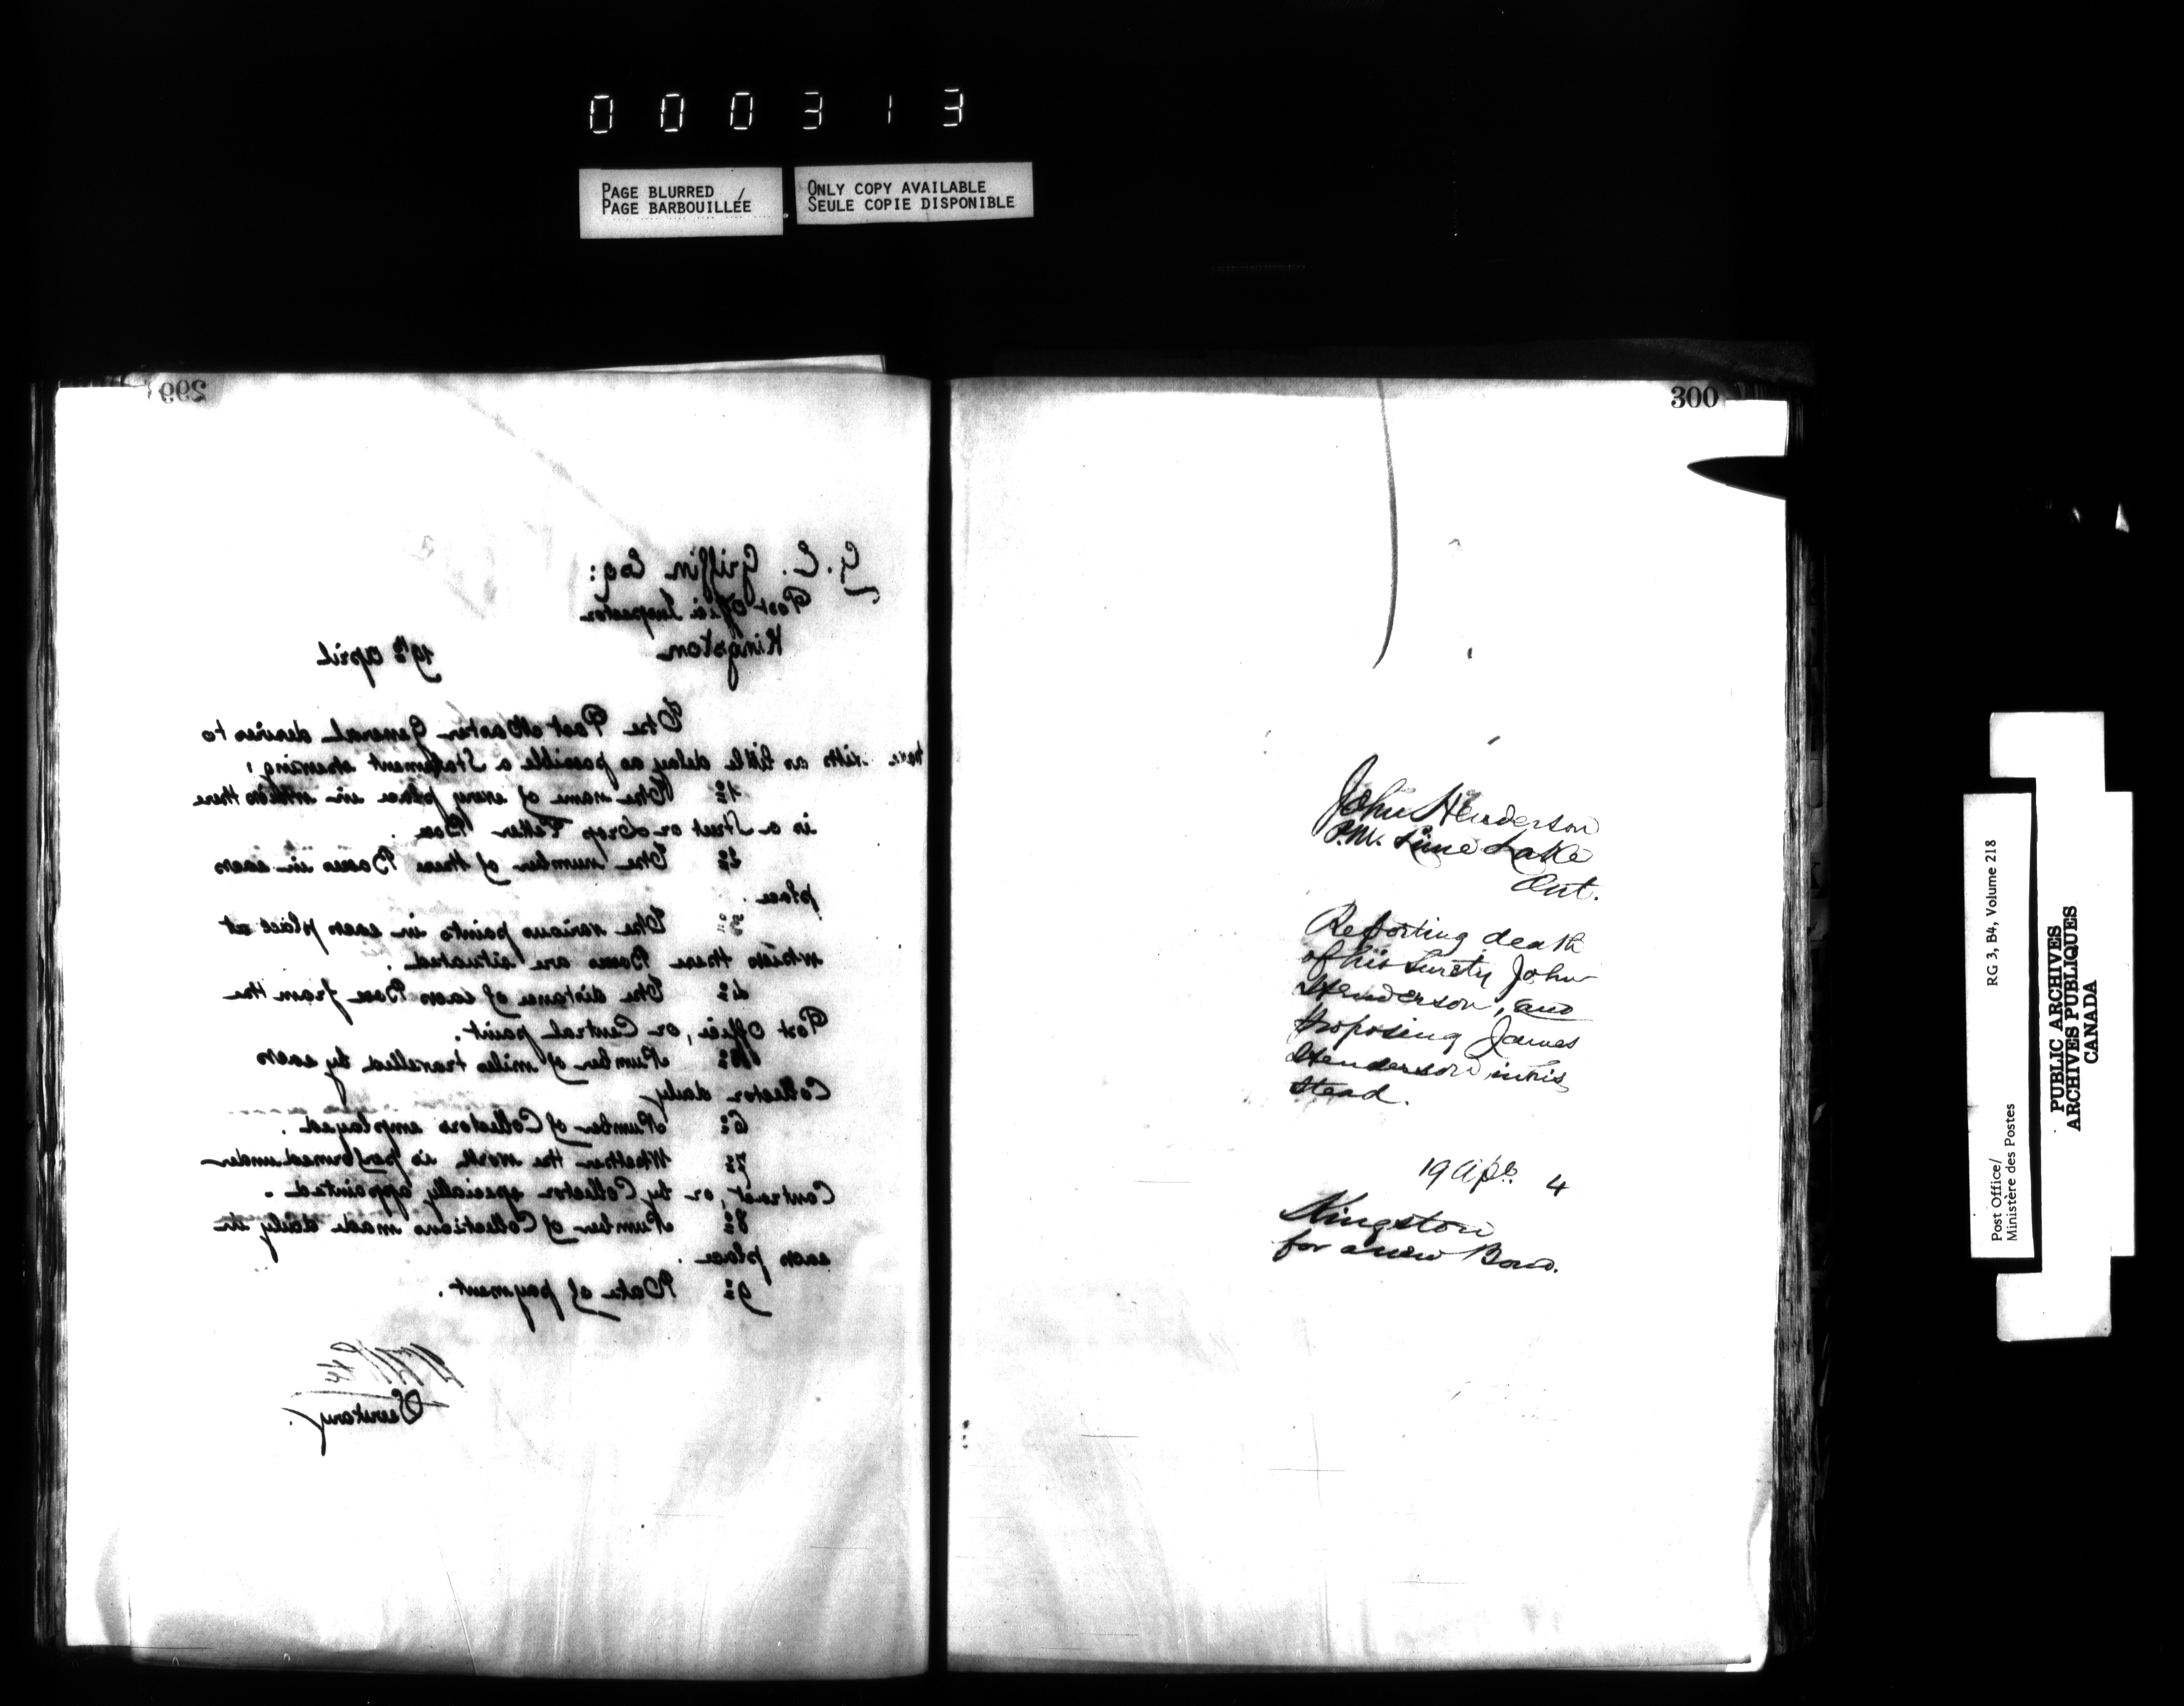 000313
PAGE BLURRED /
PAGE BARBOUILLÉE
ONLY COPY AVAILABLE
SEULE COPIE DISPONIBLE
299
G. C. Griffin Esq:
Post Office Inspector
Kingston
19th April
The Post Master General desires to
have with as little delay as possible a Statement shewing;
1º The name of every place in which there
is a Street or Drop Letter Box.
2º The number of these Boxes in each
place.
3º The various points in each place at
which these Boxes are situated.
4º The distance of each Box from the
Post Office, or Central point.
5º Number of miles travelled by each
Collector daily
6º Number of Collectors employed.
7º Whether the work is performed under
Contract, or by Collector specially appointed.
8º Number of Collections made daily in
each place.
9º Rate of payment.
Secretary
300
John Henderson
P.M. Lime Lake
Ont.
Reporting death
of his Surety John
Henderson, and
proposing James
Henderson in his
stead.
19 Apl. 4
Kingston
for a new Bond.
Post Office/
Ministère des Postes
RG 3, B4, Volume 218
PUBLIC ARCHIVES
ARCHIVES PUBLIQUES
CANADA